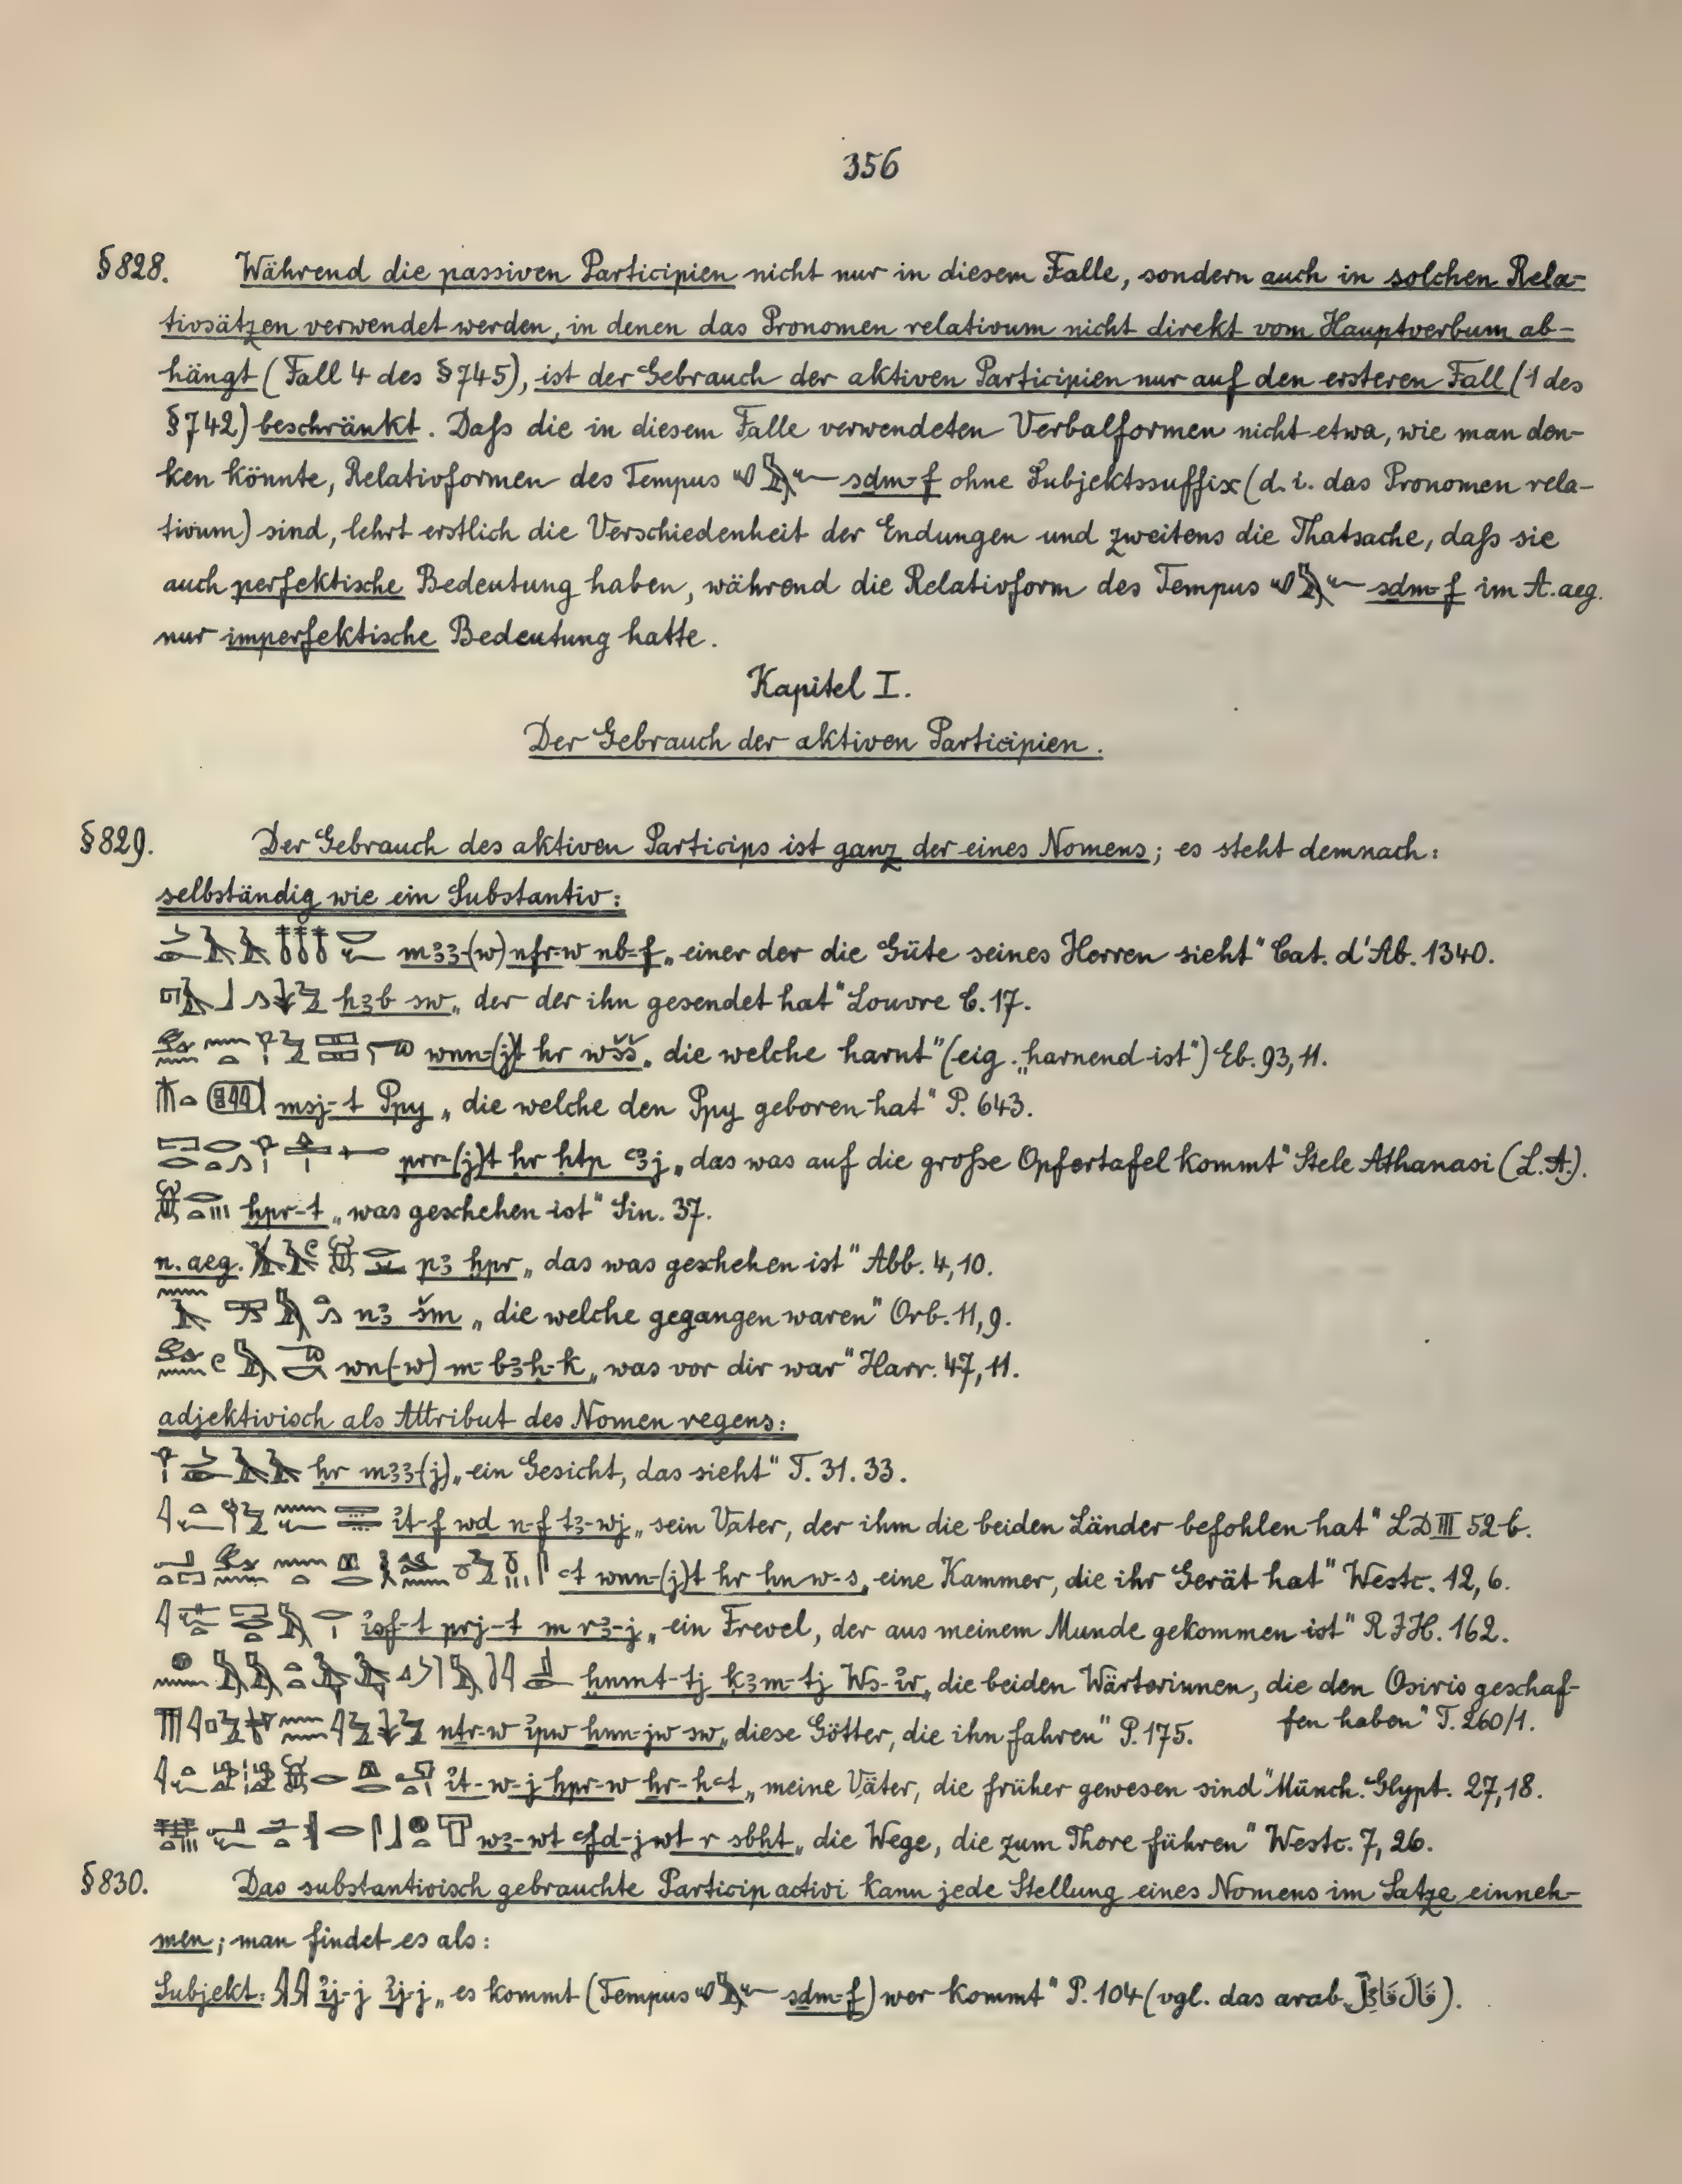 356
§828. Während die passiven Participien nicht nur in diesem Falle, sondern auch in solchen Rela-
tivsätzen verwendet werden, in denen das Pronomen relativum nicht direkt vom Hauptverbum ab-
hängt (Fall 4 des §745), ist der Gebrauch der aktiven Participien nur auf den ersteren Fall (1 des
§742) beschränkt. Daſs die in diesem Falle verwendeten Verbalformen nicht etwa, wie man den-
ken könnte, Relativformen des Tempus sdm-f ohne Subjektssuffix (d. i. das Pronomen rela-
tivum) sind, lehrt erstlich die Verschiedenheit der Endungen und zweitens die Thatsache, daſs sie
auch perfektische Bedeutung haben, während die Relativform des Tempus sdm-f im A. aeg.
nur imperfektische Bedeutung hatte.
Kapitel I.
Der Gebrauch der aktiven Participien.
§829. Der Gebrauch des aktiven Particips ist ganz der eines Nomens; es steht demnach:
selbständig wie ein Substantiv:
m33-(w) nfr-w nb-f „einer der die Güte seines Herren sieht“ Cat. d'Ab. 1340.
h3b sw „der der ihn gesendet hat“ Louvre C. 17.
wnn-(j)t hr wšš „die welche harnt“ (eig. „harnend ist“) Eb. 93, 11.
msj-t Ppy „die welche den Ppy geboren hat“ P. 643.
prr-(j)t hr htp ꜥ3j „das was auf die groſse Opfertafel kommt“ Stele Athanasi (L.A.).
hpr-t „was geschehen ist“ Sin. 37.
n. aeg. p3 hpr „das was geschehen ist“ Abb. 4, 10.
n3 šm „die welche gegangen waren“ Orb. 11, 9.
wn(-w) m-b3h-k „was vor dir war“ Harr. 47, 11.
adjektivisch als Attribut des Nomen regens:
hr m33-(j) „ein Gesicht, das sieht“ T. 31. 33.
ỉt-f wd n-f t3-wj „sein Vater, der ihm die beiden Länder befohlen hat“ LD III 52 b.
ꜥt wnn-(j)t hr hnw-s „eine Kammer, die ihr Gerät hat“ Westc. 12, 6.
ỉsf-t prj-t m r3-j „ein Frevel, der aus meinem Munde gekommen ist“ RJH. 162.
hnmt-tj k3m-tj Ws-ỉr „die beiden Wärterinnen, die den Osiris geschaf-
fen haben“ T. 260/1.
ntr-w ỉpw hnn-jw sw „diese Götter, die ihn fahren“ P. 175.
ỉt-w-j hpr-w hr-hꜥt „meine Väter, die früher gewesen sind“ Münch. Glypt. 27, 18.
w3-wt ꜥfd-jwt r sbht „die Wege, die zum Thore führen“ Westc. 7, 26.
§830. Das substantivisch gebrauchte Particip activi kann jede Stellung eines Nomens im Satze einneh-
men; man findet es als:
Subjekt: ỉj-j ỉj-j „es kommt (Tempus sdm-f) wer kommt“ P. 104 (vgl. das arab. ).